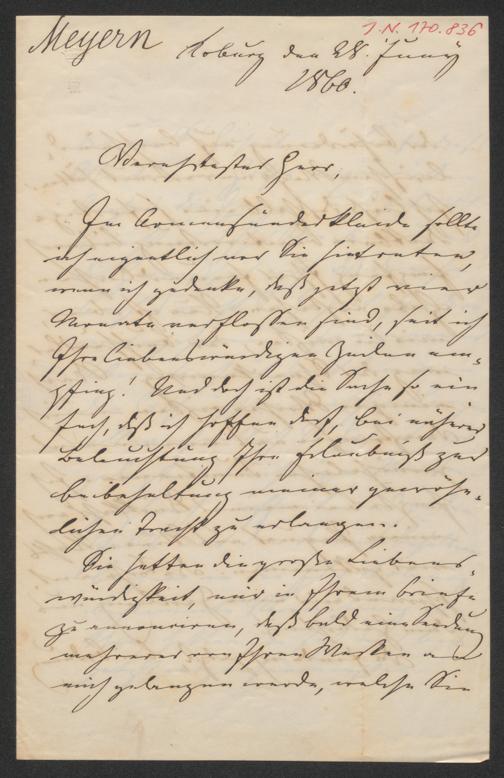 Meyern
J.N. 170.836
Koburg den 28. Juny
1860.
Verehrtester Herr,
Im Armensünderkleide sollte
ich eigentlich vor Sie hintreten,
wenn ich gedenke, daß jetzt vier
Monate verflossen sind, seit ich
Ihre liebenswürdigen Zeilen em-
pfing! Und doch ist die Sache so ein
fach, daß ich hoffen darf, bei näherer
Beleuchtung Ihre Erlaubniß zur
Beibehaltung meiner gewöhn-
lichen Tracht zu erlangen.
Sie hatten die große Liebens-
würdigkeit, mir in Ihrem Briefe
zu annonciren, daß bald eine Sendung
mehrerer von Ihren Werken an
mich gelangen werde, welche Sie